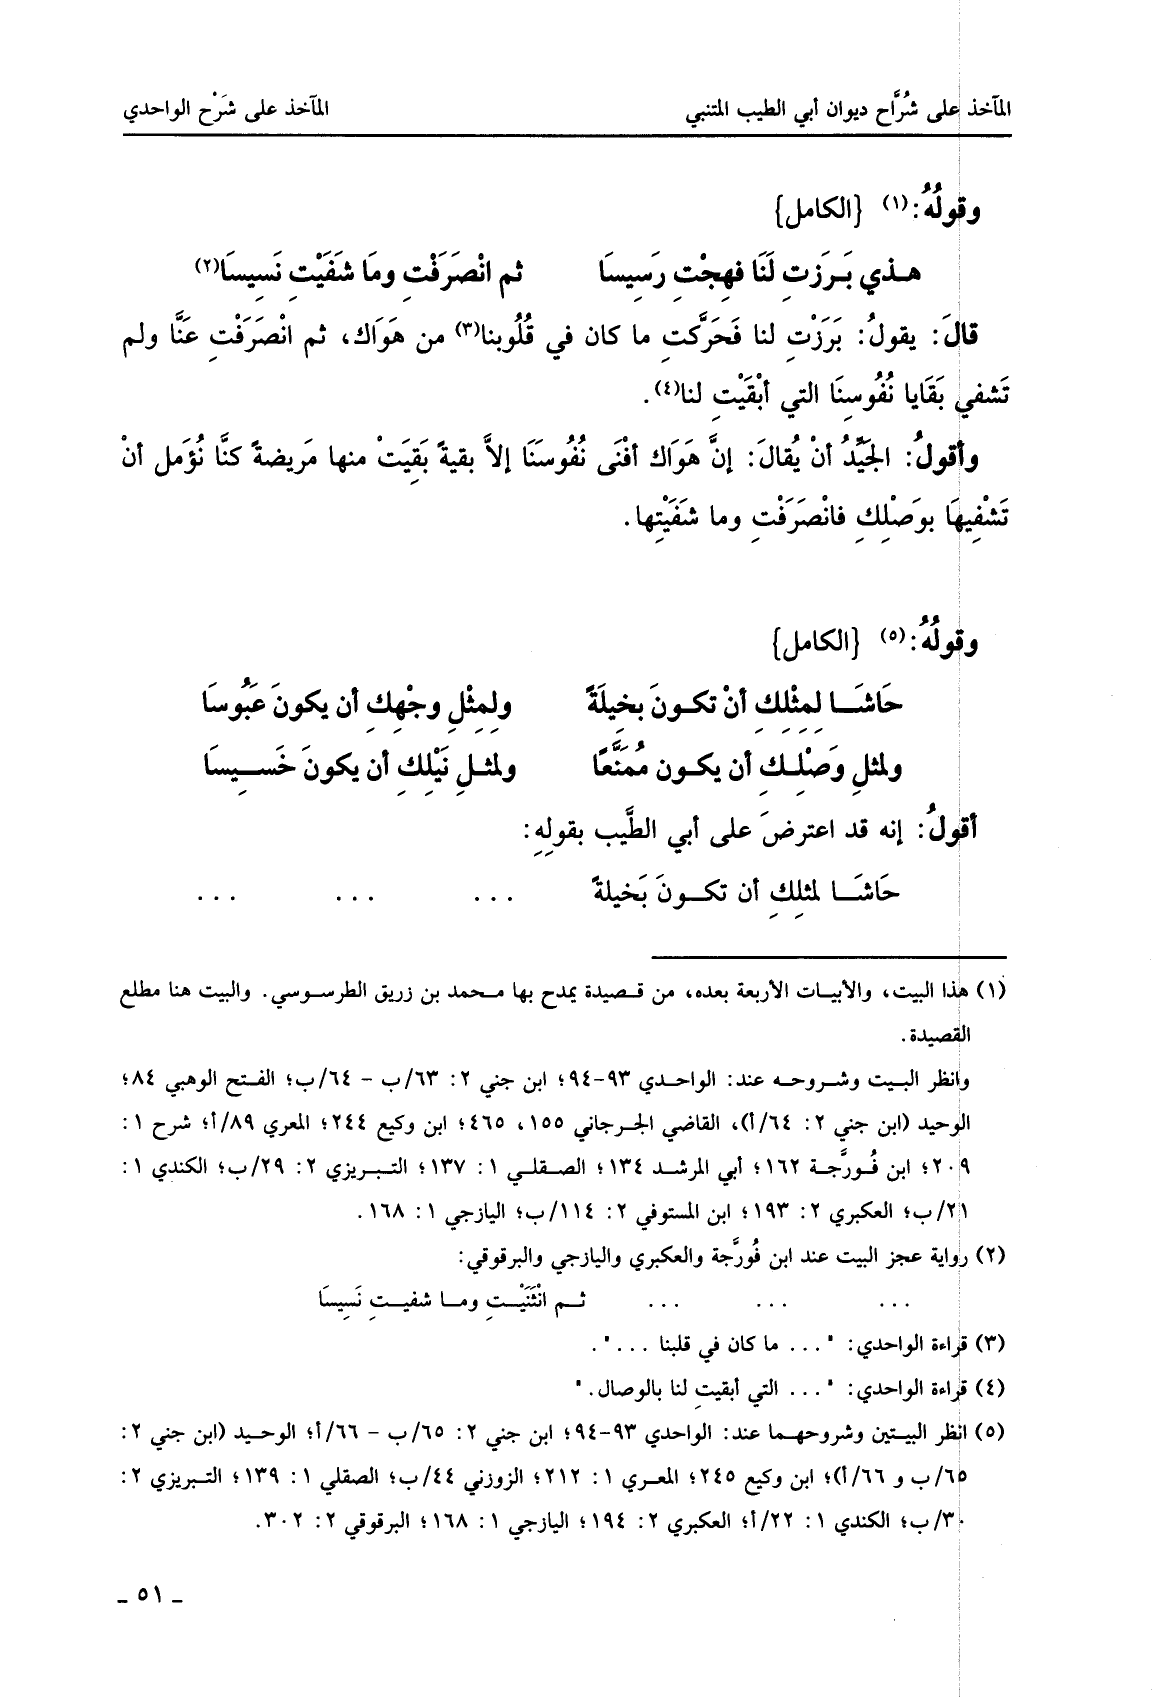 المآخذ على شُرَّاح ديوان أبي الطيب المتنبي المآخذ على شَرْح الواحدي
وقولُهُ:(١) {الكامل}
هـذي بَـرَزتِ لَنَا فهِجْتِ رَسِيسَا ثم انْصَرَفْتِ ومَا شَفَيْتِ نَسِيسَا(٢)
قالَ: يقولُ: بَرَزْتِ لنا فَحَرَّكتِ ما كان في قُلُوبنا(٣) من هَوَاك، ثم انْصَرَفْتِ عَنَّا ولم
تَشفي بَقَايا نُفُوسِنَا التي أبْقَيْتِ لنا(٤).
وأقولُ: الجَيِّدُ أنْ يُقالَ: إنَّ هَوَاك أفْنَى نُفُوسَنَا إلاَّ بقيةً بَقِيَتْ منها مَريضةً كنَّا نُؤمل أنْ
تَشْفِيهَا بوَصْلِكِ فانْصَرَفْتِ وما شَفَيْتِها.
وقولُهُ:(٥) {الكامل}
حَاشَـــا لِمِثْلِكِ أنْ تكـونَ بخِيلَةً ولمِثْلِ وجْهِكِ أن يكونَ عَبُوسَا
ولمثلِ وَصْلِـكِ أن يكـون مُمَنَّعًا ولمثـلِ نَيْلِكِ أن يكونَ خَسـِيسَا
أقولُ: إنه قد اعترضَ على أبي الطَّيب بقولِهِ:
حَاشَـــا لمثلِكِ أن تكـــونَ بَخيلةً ... ... ...
(١) هذا البيت، والأبيـات الأربعة بعده، من قـصيدة يمدح بها محمد بن زريق الطرسـوسي. والبيت هنا مطلع
القصيدة.
وانظر البـيت وشـروحـه عند: الواحـدي ٩٣-٩٤؛ ابن جني ٢: ٦٣/ب - ٦٤/ب؛ الفـتح الوهبي ٨٤؛
الوحيد (ابن جني ٢: ٦٤/أ)، القاضي الجـرجاني ١٥٥، ٤٦٥؛ ابن وكيع ٢٤٤؛ المعري ٨٩/أ؛ شرح ١:
٢٠٩؛ ابن فُورَّجـة ١٦٢؛ أبي المرشـد ١٣٤؛ الصـقلـي ١: ١٣٧؛ التـبـريزي ٢: ٢٩/ب؛ الكندي ١:
٢١/ب؛ العكبري ٢: ١٩٣؛ ابن المستوفي ٢: ١١٤/ب؛ اليازجي ١: ١٦٨.
(٢) رواية عجز البيت عند ابن فُورَّجة والعكبري واليازجي والبرقوقي:
... ... ... ثـم انْثَنَيْـتِ ومـا شفيـتِ نَسِيسَا
(٣) قراءة الواحدي: "... ما كان في قلبنا ...".
(٤) قراءة الواحدي: "... التي أبقيتِ لنا بالوصال."
(٥) انظر البيـتين وشروحهـما عند: الواحدي ٩٣-٩٤؛ ابن جني ٢: ٦٥/ب - ٦٦/أ؛ الوحـيد (ابن جني ٢:
٦٥/ب و ٦٦/أ)؛ ابن وكيع ٢٤٥؛ المعـري ١: ٢١٢؛ الزوزني ٤٤/ب؛ الصقلي ١: ١٣٩؛ التـبريزي ٢:
٣٠/ب؛ الكندي ١: ٢٢/أ؛ العكبري ٢: ١٩٤؛ اليازجي ١: ١٦٨؛ البرقوقي ٢: ٣٠٢.
ـ ٥١ ـ